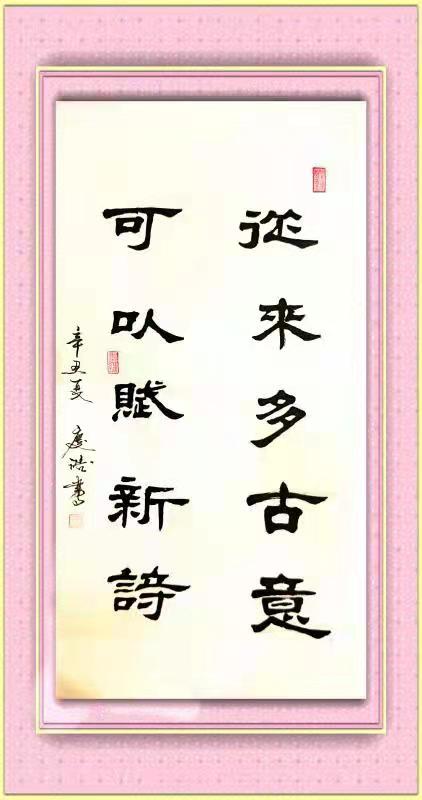 從來多古意
可以賦新詩
辛丑夏 書